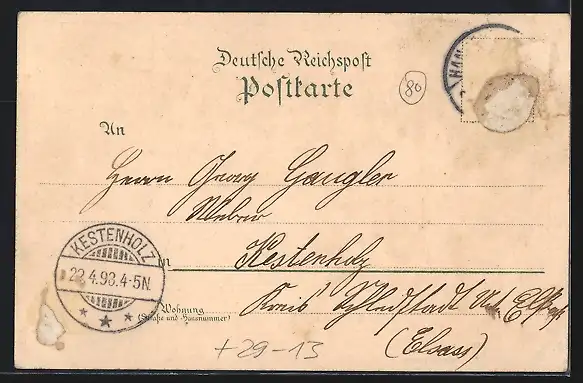 Deutsche Reichspost
Postkarte
80
HAN
An
Herrn Georg Gangler
Weber
in Kestenholz
KESTENHOLZ
22.4.98.4-5N.
Wohnung
(Straße und Hausnummer)
Kreis Schlettstadt
(Elsass)
+29-13